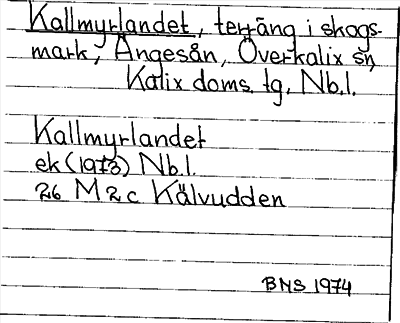 Kallmyrlandet, terräng i skogs-
mark, Ängesån, Överkalix sn,
Kalix doms. tg, Nb.l.
Kallmyrlandet
ek (1973) Nb.l.
26 M 2 c Kälvudden
BNS 1974